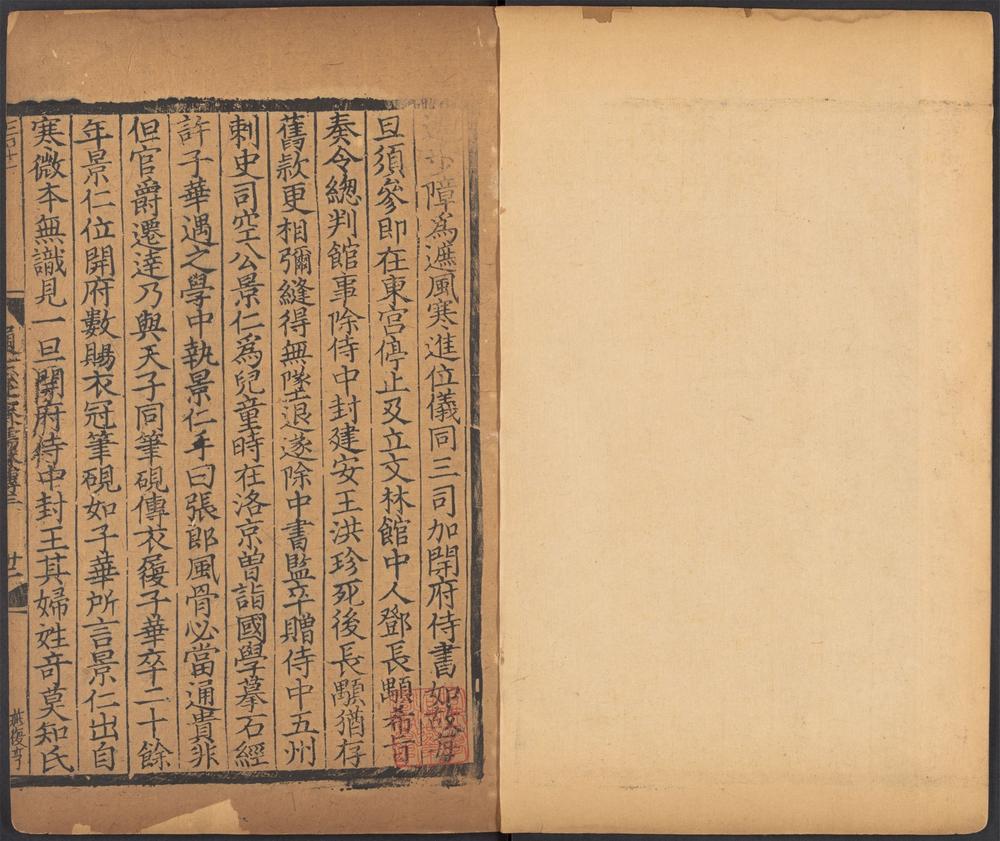 障爲遮風寒進位儀同三司加開府侍書如故每
旦須參即在東宫停止及立文林館中人鄧長顒希旨
奏令緫判館事除侍中封建安王洪珍死後長顒猶存
舊款更相彌縫得無墜退遂除中書監卒贈侍中五州
刺史司空公景仁爲兒童時在洛京曽詣國學摹石經
許子華遇之學中執景仁手曰張郎風骨必當通貴非
但官爵遷逹乃與天子同筆硯傳衣履子華卒二十餘
年景仁位開府數賜衣冠筆硯如子華所言景仁出自
寒微本無識見一旦開府侍中封王其婦姓竒莫知氏